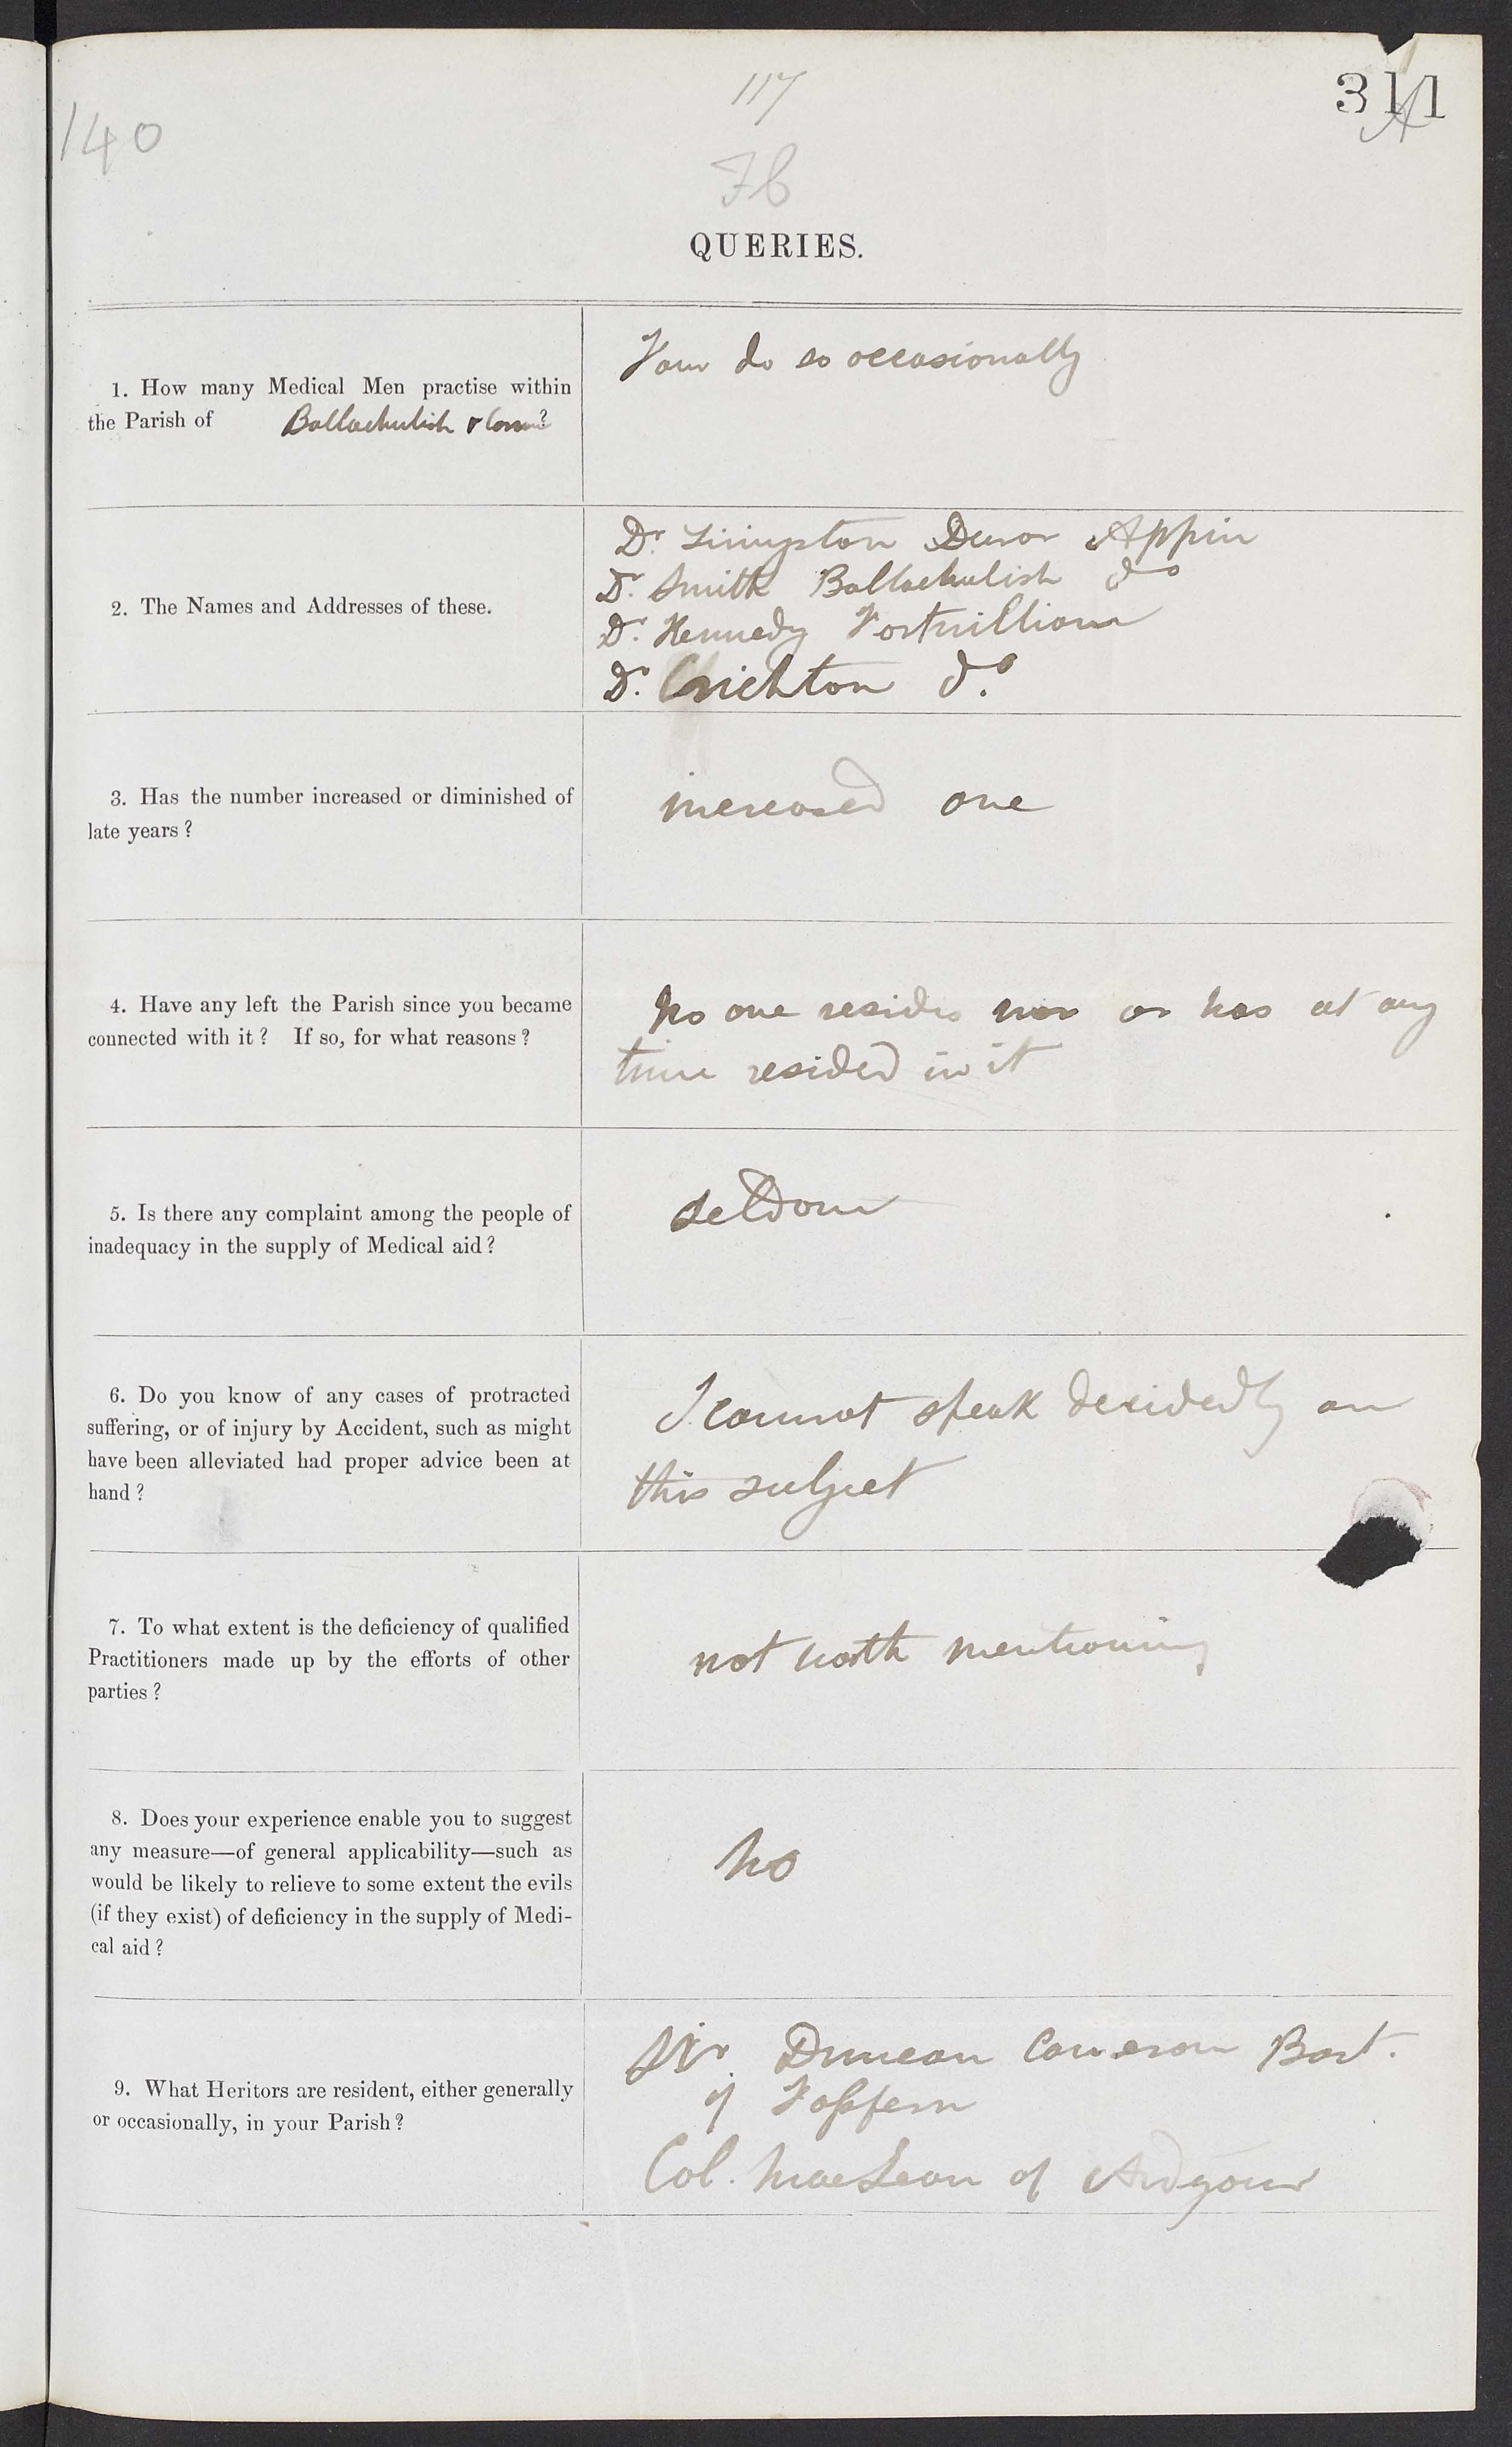 117
311
A
140
Fb
QUERIES.
1. How many Medical Men practise within
the Parish of Ballachulish & Corran?
Four do so occasionally
2. The Names and Addresses of these.
Dr. Livingston Duror Appin
Dr. Smith Ballachulish do
Dr. Kennedy Fortwilliam
Dr. Crichton do.
3. Has the number increased or diminished of
late years?
increased one
4. Have any left the Parish since you became
connected with it? If so, for what reasons?
No one resides now or has at any
time resided in it
5. Is there any complaint among the people of
inadequacy in the supply of Medical aid?
Seldom
6. Do you know of any cases of protracted
suffering, or of injury by Accident, such as might
have been alleviated had proper advice been at
hand?
I cannot speak decidedly on
this subject
7. To what extent is the deficiency of qualified
Practitioners made up by the efforts of other
parties?
not worth mentioning
8. Does your experience enable you to suggest
any measure—of general applicability—such as
would be likely to relieve to some extent the evils
(if they exist) of deficiency in the supply of Medi-
cal aid?
No
9. What Heritors are resident, either generally
or occasionally, in your Parish?
Sir Duncan Cameron Bart.
of Fassfern
Col. MacLean of Ardgour